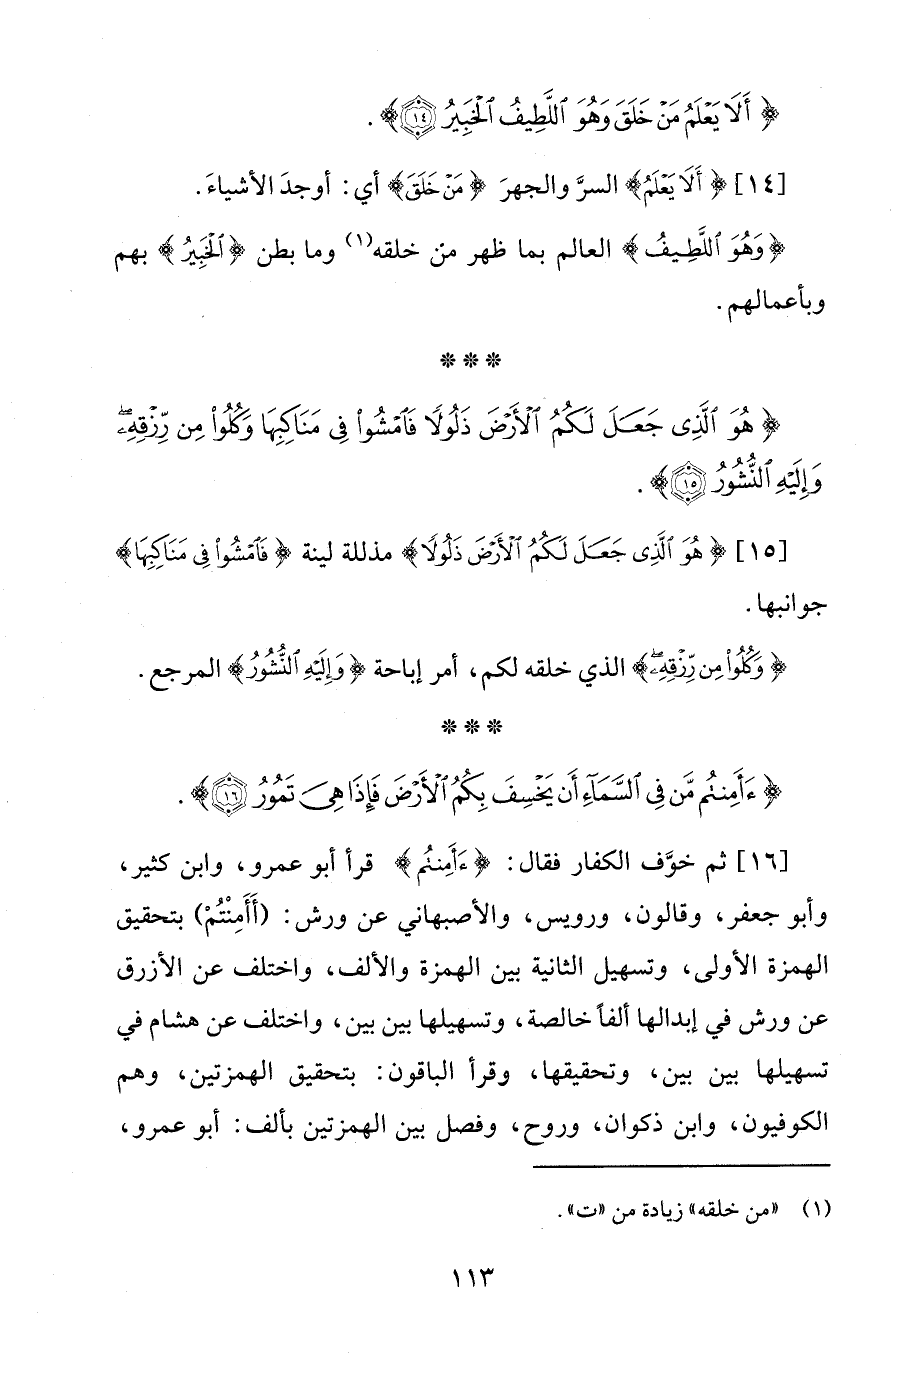 ﴿ أَلَا يَعْلَمُ مَنْ خَلَقَ وَهُوَ ٱللَّطِيفُ ٱلْخَبِيرُ ١٤﴾ .
[١٤] ﴿ أَلَا يَعْلَمُ﴾ السرَّ والجهرَ ﴿ مَنْ خَلَقَ﴾ أي: أوجدَ الأشياءَ.
﴿وَهُوَ ٱللَّطِيفُ ﴾ العالم بما ظهر من خلقه(١) وما بطن ﴿ٱلْخَبِيرُ ﴾ بهم
وبأعمالهم.
***
﴿ هُوَ ٱلَّذِى جَعَلَ لَكُمُ ٱلْأَرْضَ ذَلُولًا فَٱمْشُوا۟ فِى مَنَاكِبِهَا وَكُلُوا۟ مِن رِّزْقِهِۦ ۖ
وَإِلَيْهِ ٱلنُّشُورُ ١٥﴾ .
[١٥] ﴿ هُوَ ٱلَّذِى جَعَلَ لَكُمُ ٱلْأَرْضَ ذَلُولًا﴾ مذللة لينة ﴿ فَٱمْشُوا۟ فِى مَنَاكِبِهَا﴾
جوانبها.
﴿ وَكُلُوا۟ مِن رِّزْقِهِۦ ۖ﴾ الذي خلقه لكم، أمر إباحة ﴿ وَإِلَيْهِ ٱلنُّشُورُ ﴾ المرجع.
***
﴿ ءَأَمِنتُم مَّن فِى ٱلسَّمَآءِ أَن يَخْسِفَ بِكُمُ ٱلْأَرْضَ فَإِذَا هِىَ تَمُورُ ١٦﴾ .
[١٦] ثم خوَّف الكفار فقال: ﴿ ءَأَمِنتُم ﴾ قرأ أبو عمرو، وابن كثير،
وأبو جعفر، وقالون، ورويس، والأصبهاني عن ورش: (أَأَمِنْتُمْ) بتحقيق
الهمزة الأولى، وتسهيل الثانية بين الهمزة والألف، واختلف عن الأزرق
عن ورش في إبدالها ألفاً خالصة، وتسهيلها بين بين، واختلف عن هشام في
تسهيلها بين بين، وتحقيقها، وقرأ الباقون: بتحقيق الهمزتين، وهم
الكوفيون، وابن ذكوان، وروح، وفصل بين الهمزتين بألف: أبو عمرو،
(١) «من خلقه» زيادة من «ت».
١١٣